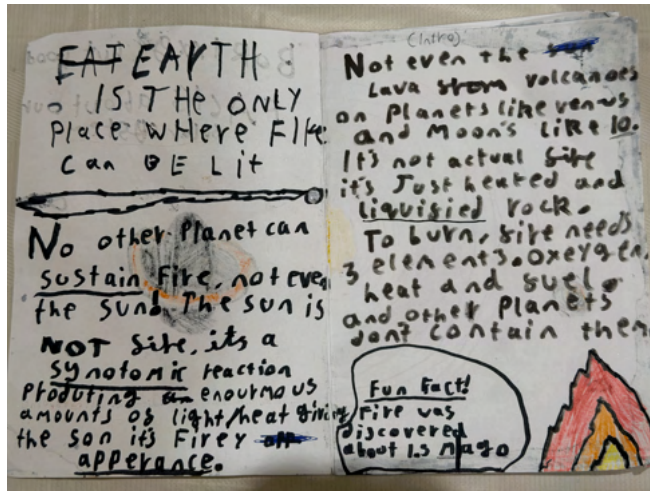 EAT EARTH
IS THE ONLY
Place WHere Fire
Can BE Lit
No other Planet can
sustain Fire, not even
the sun! The sun is
NOT fire, its a
synotomic reaction
Produting an enourmous
amounts of light/heat giving
the son its Firey
apperance.
(Intro)
Not even the
Lava volcanoes
on Planets like venus
and Moon's like IO.
It's not actual fire
it's Just heated and
liquified rock.
To burn, fire needs
3 elements. Oxeygen,
heat and fuel.
and other Planets
don't contain them
Fun Fact!
Fire was
discovered
about 1.5 M ago